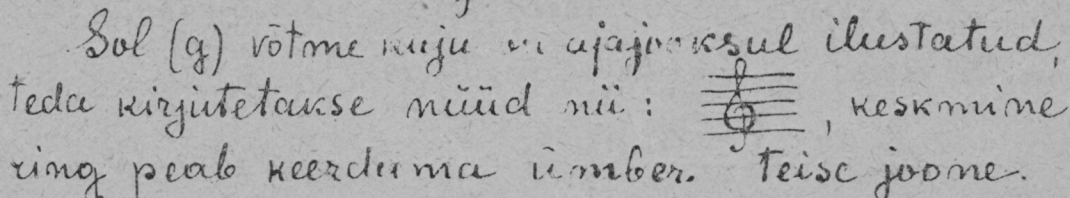 Sol (g) võtme kuju on ajajooksul ilustatud,
teda kirjutetakse nüüd nii: , keskmine
ring peab keerduma ümber. teise joone.